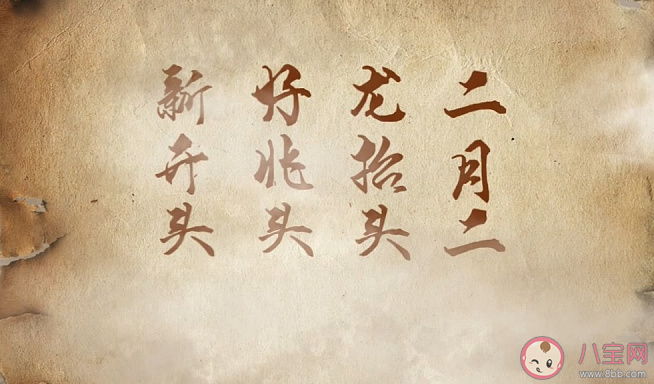 二月二
龙抬头
好兆头
新开头
八宝网
www.8bb.com